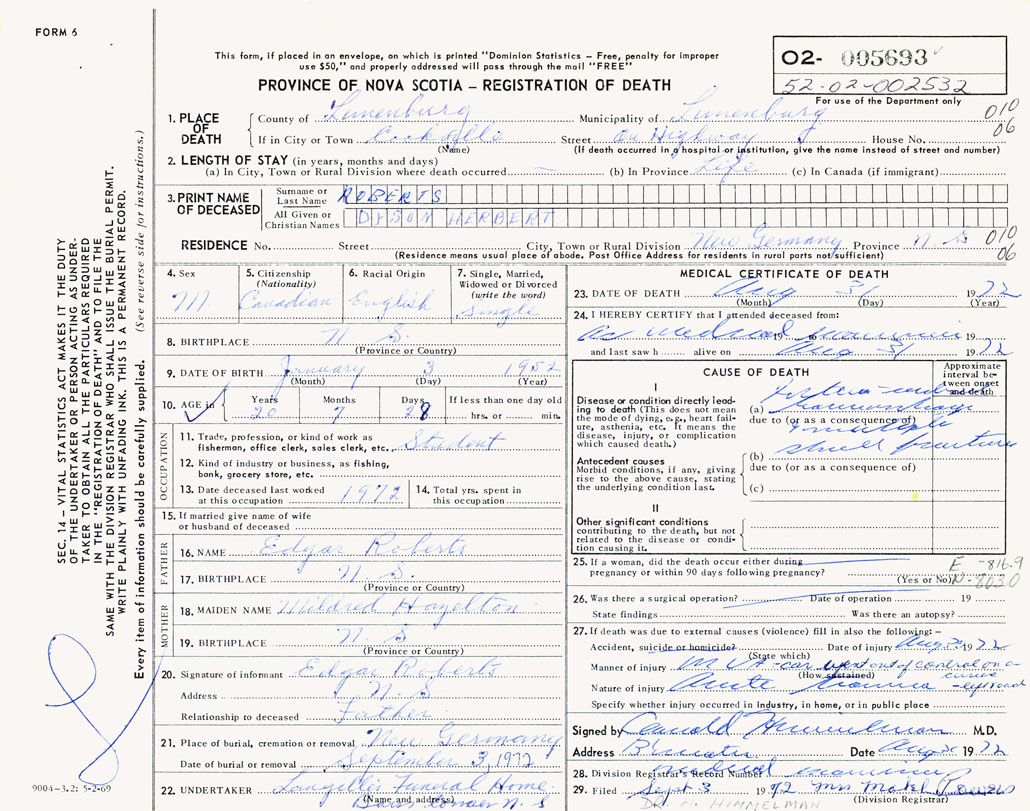 FORM 6
This form, if placed in an envelope, on which is printed "Dominion Statistics — Free, penalty for improper
use $50," and properly addressed will pass through the mail "FREE"
PROVINCE OF NOVA SCOTIA – REGISTRATION OF DEATH
02- 005693
52-02-002532
For use of the Department only
010
06
1. PLACE OF DEATH
County of Lunenburg Municipality of Lunenburg
If in City or Town Street on Highway House No.
(Name) (If death occurred in a hospital or institution, give the name instead of street and number)
2. LENGTH OF STAY (in years, months and days)
(a) In City, Town or Rural Division where death occurred — (b) In Province Life (c) In Canada (if immigrant)
3. PRINT NAME OF DECEASED
Surname or Last Name ROBERTS
All Given or Christian Names DYSON HERBERT
RESIDENCE No. Street City, Town or Rural Division New Germany Province N. S 010
(Residence means usual place of abode. Post Office Address for residents in rural parts not sufficient) 06
4. Sex M
5. Citizenship (Nationality) Canadian
6. Racial Origin English
7. Single, Married, Widowed or Divorced (write the word) Single
8. BIRTHPLACE N. S.
(Province or Country)
9. DATE OF BIRTH January 3 1952
(Month) (Day) (Year)
10. AGE in Years 20 Months 7 Days 28 If less than one day old hrs. or min.
OCCUPATION
11. Trade, profession, or kind of work as
fisherman, office clerk, sales clerk, etc. Student
12. Kind of industry or business, as fishing,
bank, grocery store, etc.
13. Date deceased last worked at this occupation 1972
14. Total yrs. spent in this occupation
15. If married give name of wife
or husband of deceased
FATHER
16. NAME Edgar Roberts
17. BIRTHPLACE N. S.
(Province or Country)
MOTHER
18. MAIDEN NAME Mildred Hazelton
19. BIRTHPLACE N. S
(Province or Country)
20. Signature of informant Edgar Roberts
Address N. S
Relationship to deceased Father
21. Place of burial, cremation or removal New Germany
Date of burial or removal September 3, 1972
22. UNDERTAKER Funeral Home
(Name and address) N. S
MEDICAL CERTIFICATE OF DEATH
23. DATE OF DEATH Aug 31 1972
(Month) (Day) (Year)
24. I HEREBY CERTIFY that I attended deceased from:
as medical examiner 19 to 19
and last saw h alive on Aug 31 1972
CAUSE OF DEATH
Approximate interval between onset and death
I
Disease or condition directly leading to death (This does not mean the mode of dying, e.g., heart failure, asthenia, etc. It means the disease, injury, or complication which caused death.)
(a) haemorrhage
due to (or as a consequence of)
multiple
(b) skull fractures
Antecedent causes
Morbid conditions, if any, giving rise to the above cause, stating the underlying condition last.
due to (or as a consequence of)
(c)
II
Other significant conditions
contributing to the death, but not related to the disease or condition causing it.
25. If a woman, did the death occur either during
pregnancy or within 90 days following pregnancy? (Yes or No)
E -816.9
N-803.0
26. Was there a surgical operation? Date of operation 19
State findings Was there an autopsy?
27. If death was due to external causes (violence) fill in also the following: –
Accident, suicide or homicide? Date of injury Aug 31 1972
(State which)
Manner of injury MVA - car went out of control on a curve
(How sustained)
Nature of injury Acute trauma - left road
Specify whether injury occurred in industry, in home, or in public place
Signed by M.D.
Address Date Aug 31 1972
medical examiner
28. Division Registrar's Record Number
29. Filed Sept 3 1972 Mrs
(Division Registrar)
DR. H. HIMMELMAN
SEC. 14 – VITAL STATISTICS ACT MAKES IT THE DUTY
OF THE UNDERTAKER OR PERSON ACTING AS UNDER-
TAKER TO OBTAIN ALL THE PARTICULARS REQUIRED
IN THE "REGISTRATION OF DEATH" AND TO FILE THE
SAME WITH THE DIVISION REGISTRAR WHO SHALL ISSUE THE BURIAL PERMIT.
WRITE PLAINLY WITH UNFADING INK. THIS IS A PERMANENT RECORD.
Every item of information should be carefully supplied. (See reverse side for instructions.)
9004–3.2: 5-2-69